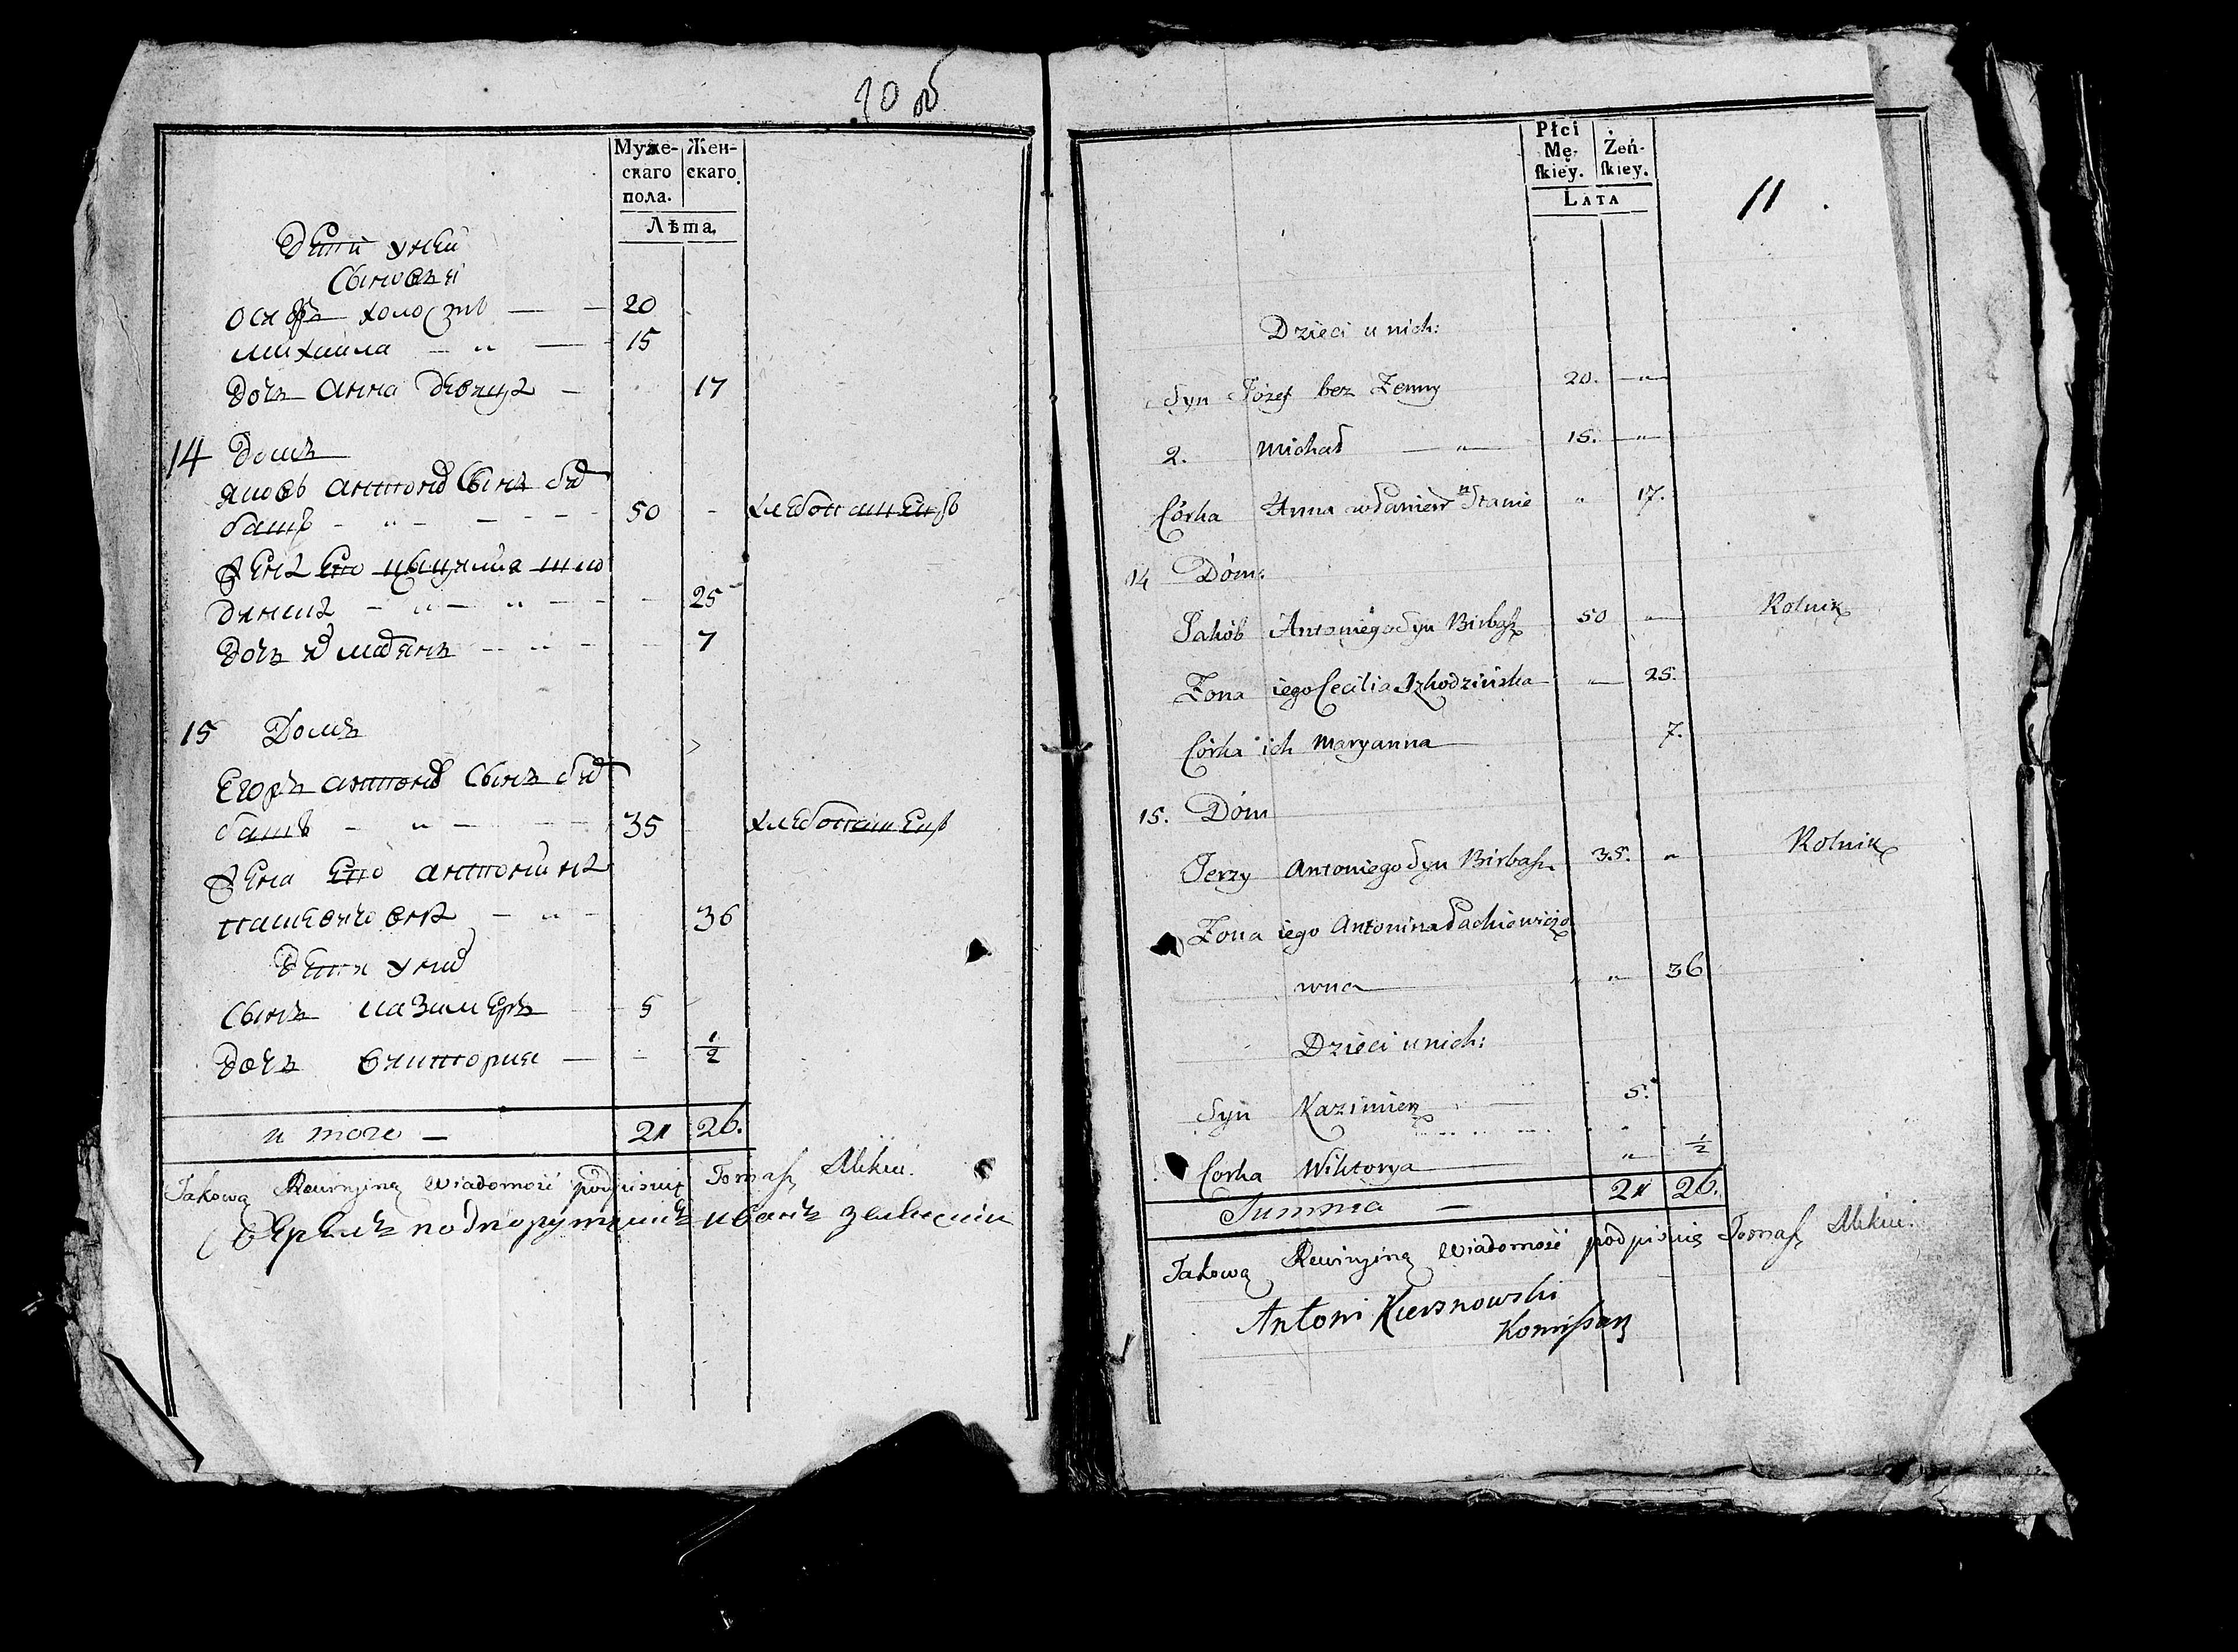 10 об
Муже-
скаго
пола.
Жен-
скаго.
Лѣта.
Дети у ней
Сыновья
Осифъ холостъ — 20
Михаила — " — 15
Дочь Анна девица — 17
14 Домъ
Яковъ антоновъ Сынъ бир
башъ - " - 50 - хлебопашецъ
Жена Его
25
Дочь 7
15 Домъ
Егоръ антоновъ Сынъ бир
башъ - " - 35 хлебопашецъ
Жена Его антонина
36
Дети у них
Сынъ казимеръ 5
Дочь виктория — ½
и того — 21 26.
Takową Rewizyiną Wiadomość podpisuię Tomasz Mikui.
подпорутчикъ иванъ
Płci
Mę-
skiey.
Żeń-
skiey.
LATA
11.
Dzieci u nich:
Syn Józef bez Zenny 20. — " —
2. Michał — " — 15. — " —
Córka Anna w Stanie " 17.
14 Dóm:
Jakób Antoniego Syn Birbasz 50 " Rolnik
Zona iego Cecilia Izkodzińska " 25.
Córka ich Maryanna 7.
15. Dóm
Jerzy Antoniego Syn Birbasz 35. " Rolnik
Zona iego Antonina Packiewiczo
wna " " 36
Dzieci u nich:
Syn Kazimierz 5.
Corka Wiktorya " ½
Summa — 21 26.
Takową Rewizyiną Wiadomość podpisuię Tomasz Mikui.
Antoni Kiersnowski
Komisarz